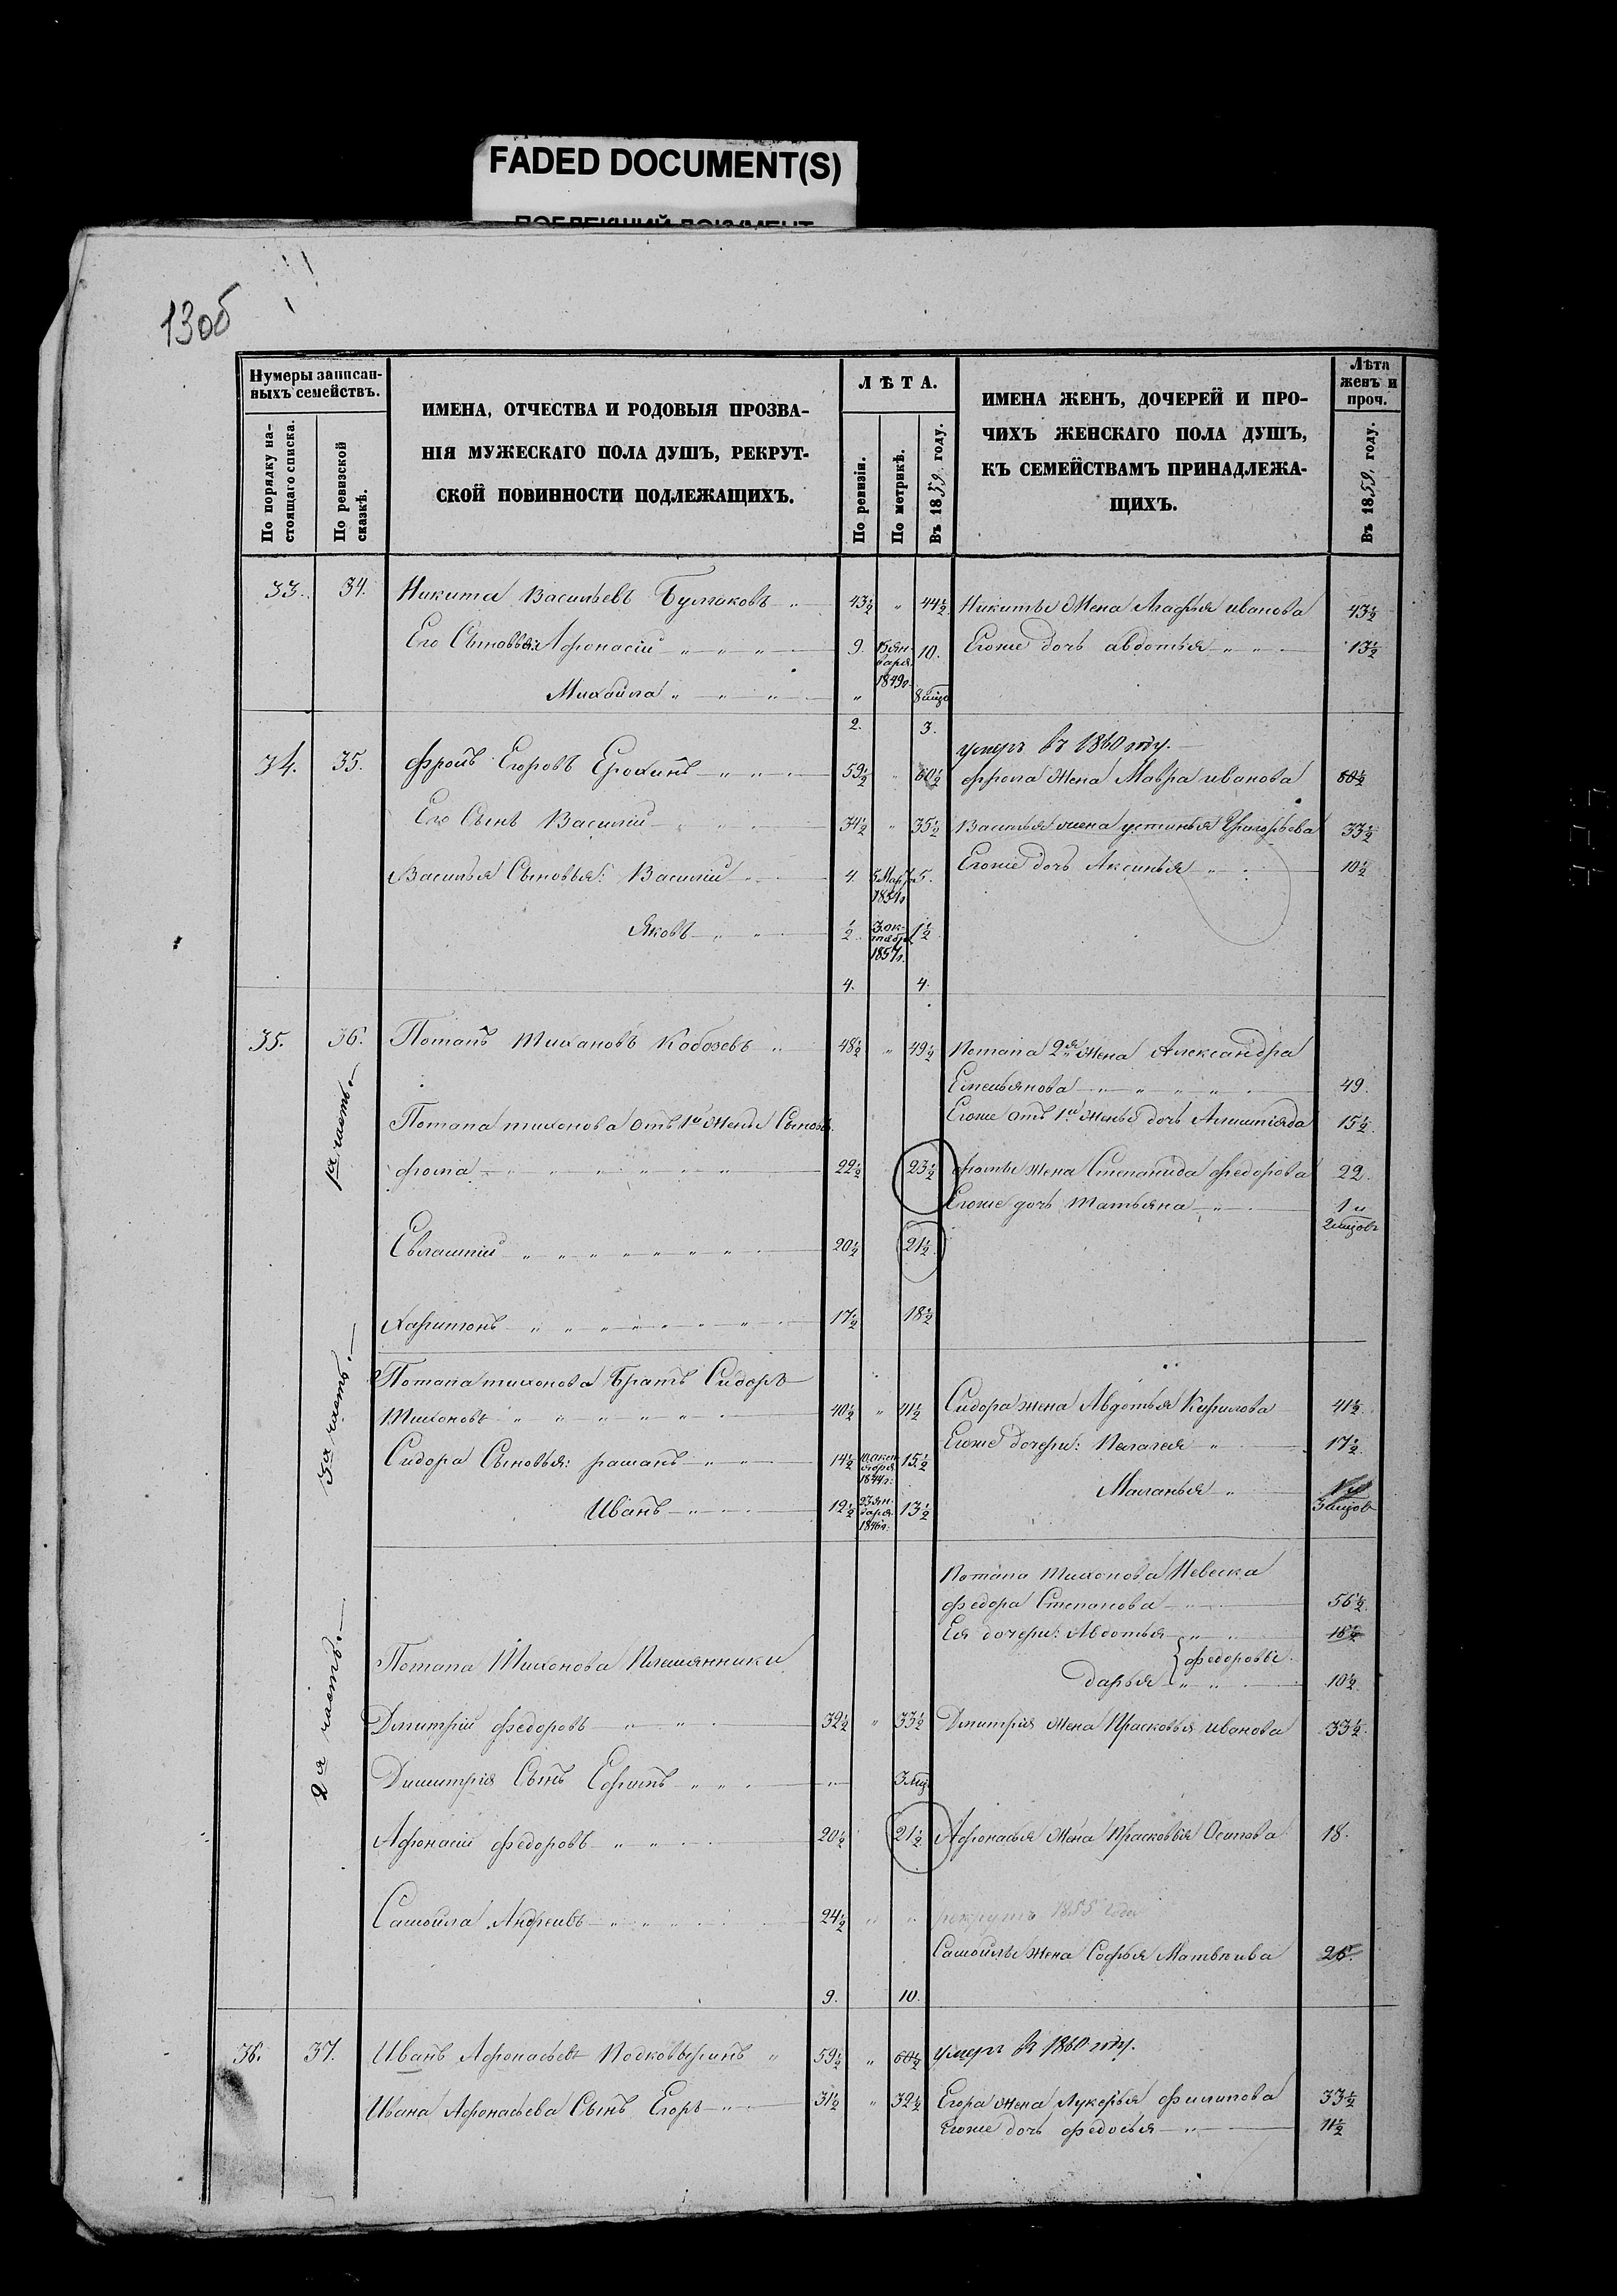 FADED DOCUMENT(S)
13об
Нумеры записанныхъ семействъ.
По порядку настоящаго списка.
По ревизской сказкѣ.
ИМЕНА, ОТЧЕСТВА И РОДОВЫЯ ПРОЗВА-
НІЯ МУЖЕСКАГО ПОЛА ДУШЪ, РЕКРУТ-
СКОЙ ПОВИННОСТИ ПОДЛЕЖАЩИХЪ.
ЛѢТА.
По ревизіи.
По метрикѣ.
Въ 1859 году.
ИМЕНА ЖЕНЪ, ДОЧЕРЕЙ И ПРО-
ЧИХЪ ЖЕНСКАГО ПОЛА ДУШЪ,
КЪ СЕМЕЙСТВАМЪ ПРИНАДЛЕЖА-
ЩИХЪ.
Лѣта женъ и проч.
Въ 1859 году.
33. 34. Никита Васильевъ Булгаковъ 43½ " 44½ Никиты Жена Агафья иванова 43½
Его Сыновья: Афонасій 9. 10. Егоже дочь авдотья 13½
1849г.
Михайла " 8 мцо
2. 3.
умеръ въ 1860 году.
34. 35. Фролъ Егоровъ Ерохинъ 59½ " 60½ Фрола Жена Мавра иванова 60½
Его Сынъ Василій 34½ " 35½ Василья жена устинья Григорьева 33½
Василья Сыновья: Василій 4. 5 Мар. 5. Егоже дочь Аксинья 10½
1854г
Яковъ ½ 3 октября 1½
1857г.
4. 4.
35. 36. Потапъ Тихановъ Кабозевъ 48½ " 49½ Потапа 2я Жена Александра
Емельянова 49.
1я часть.
Потапа тихонова отъ 1й Жены Сыновья Егоже отъ 1й Жены дочь 15½
Фома 22½ 23½ Фомы Жена Степанида Федорова 22.
Егоже дочь Татьяна 1 и
2 мцовъ
Евлампій 20½ 21½
Харитонъ 17½ 18½
3я часть.
Потапа тихонова Братъ Сидоръ
Тихоновъ 40½ " 41½ Сидора жена Авдотья Кирилова 41½
Сидора Сыновья: рамапъ 14½ 15½ Егоже дочери: Пелагея 17½
1844г:
Иванъ 12½ 23 января 13½ Маланья 1 и
1846г: 3 мцовъ
Потапа Тихонова Невеска
Федора Степанова 56½
Ея дочери: Авдотья 18½
Потапа Тихонова Племянники Федоровы
2я часть.
Дарья 10½
Дмитрій Федоровъ 32½ " 33½ Дмитрія Жена Прасковья иванова 33½
Димитрія Сынъ Ефимъ " 3 мцо
Афонасій Федоровъ 20½ 21½ Афонасья Жена Прасковья Осипова 18.
Самойла Андреивъ 24½ " " рекрутъ 1855 года
Самойлы Жена Софья Матвеива 26.
9. 10.
36. 37. Иванъ Афонасьевъ Подковыринъ 59½ " 60½ умеръ въ 1860 году.
Ивана Афонасьева Сынъ Егоръ 31½ " 32½ Егора Жена Лукерья Филипова 33½
Егоже дочь Федосья 11½